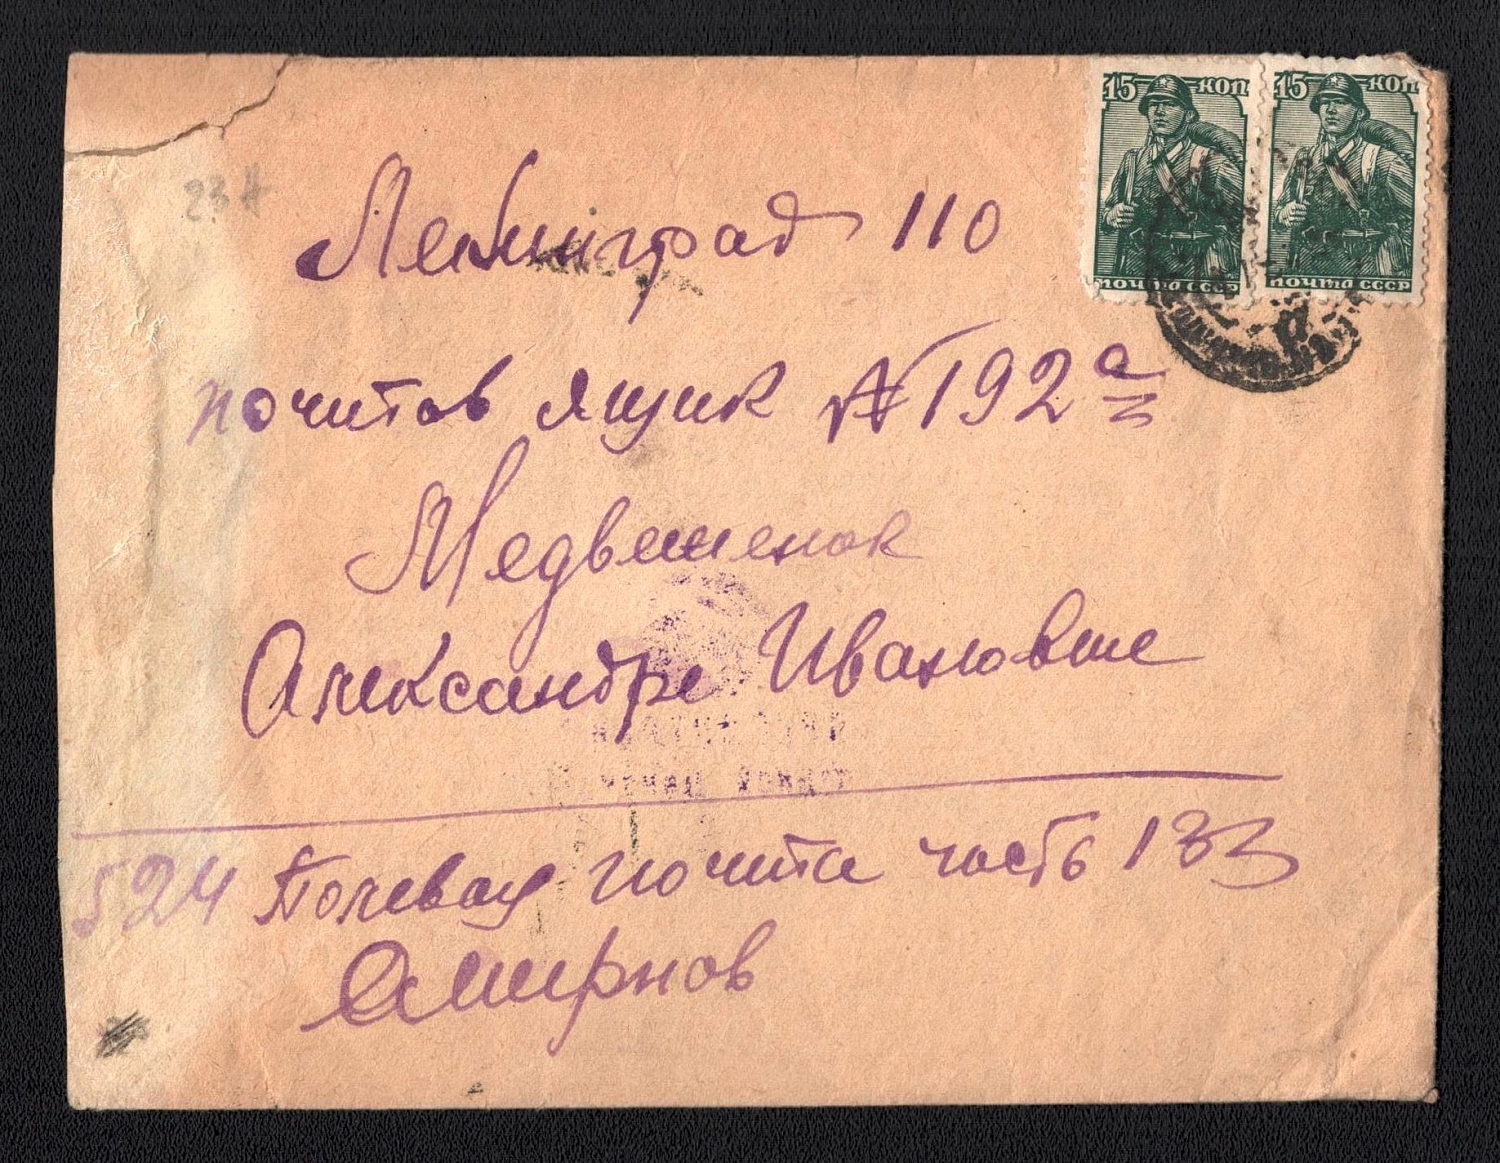 15 КОП 15 КОП
ПОЧТА СССР ПОЧТА СССР
23 А
Ленинград 110
почтов ящик № 192 а
Медвешенок
Александре Ивановне
524 Полевая почта часть 133
Смирнов